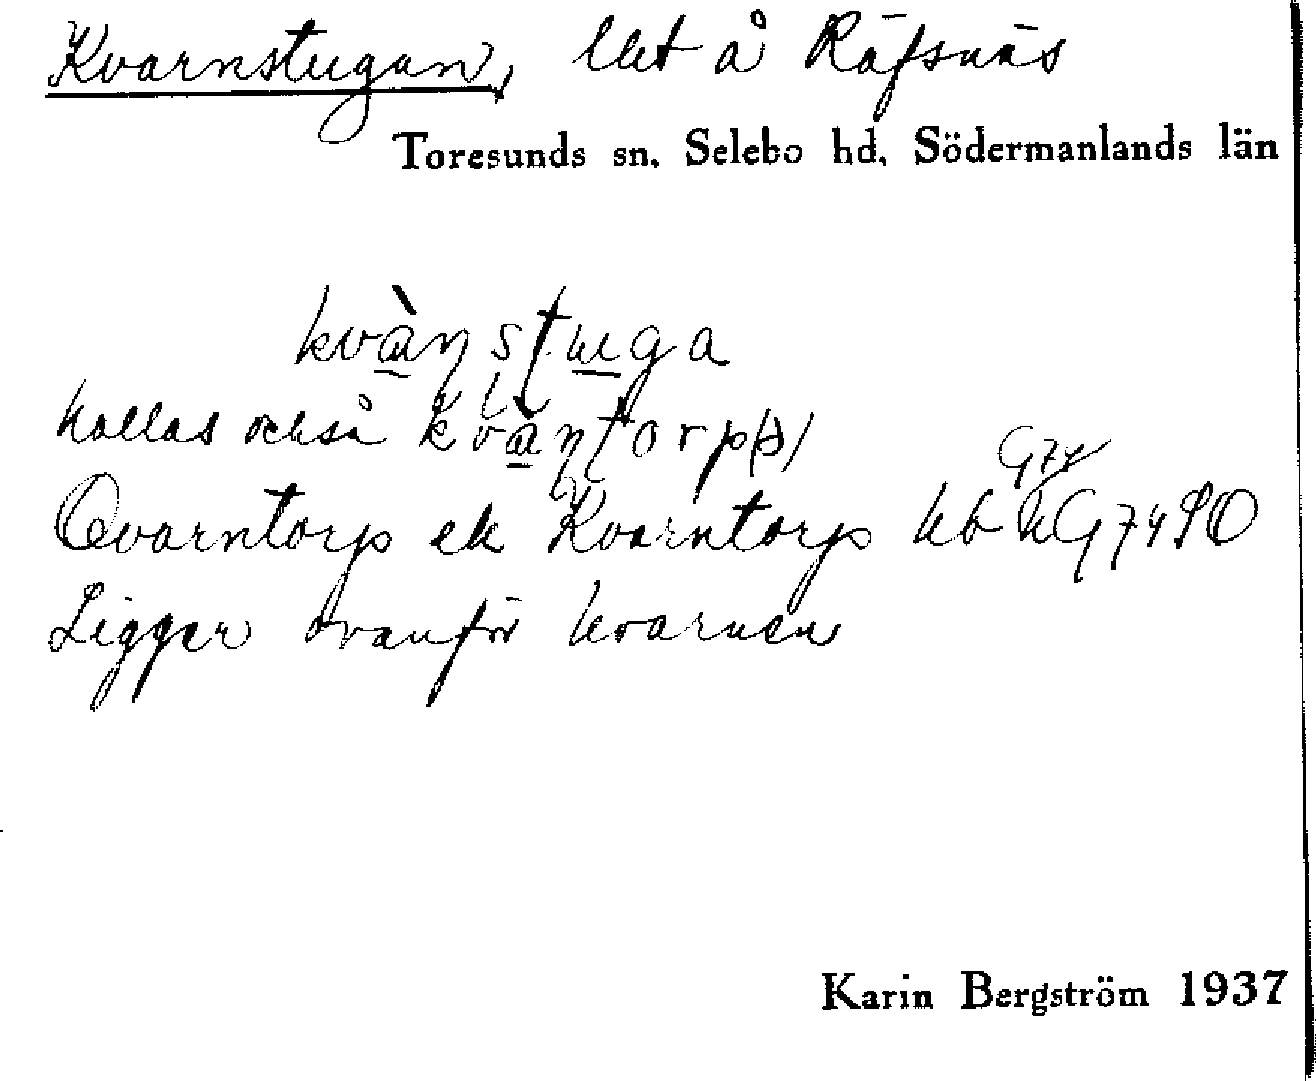 Kvarnstugan, lht å Räfsnäs
Toresunds sn. Selebo hd. Södermanlands län
kvànstuga
kallas också kvàntorp(ə)
G74
Qvarntorp ek Kvarntorp hb
Ligger ovanför kvarnen
Karin Bergström 1937